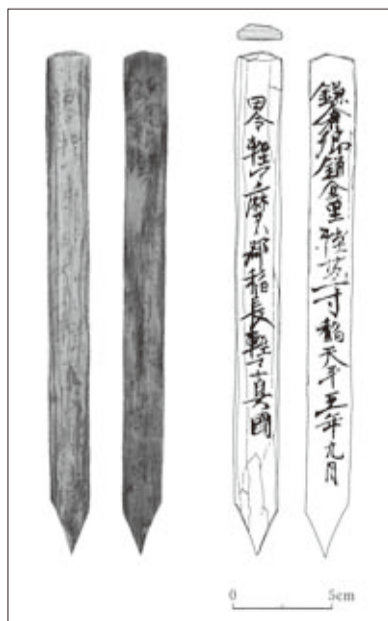 鎌倉郷鎌倉里軽マ寸稲天平五年九月
田令軽マ麻呂郡稲長軽マ真國
0 5cm